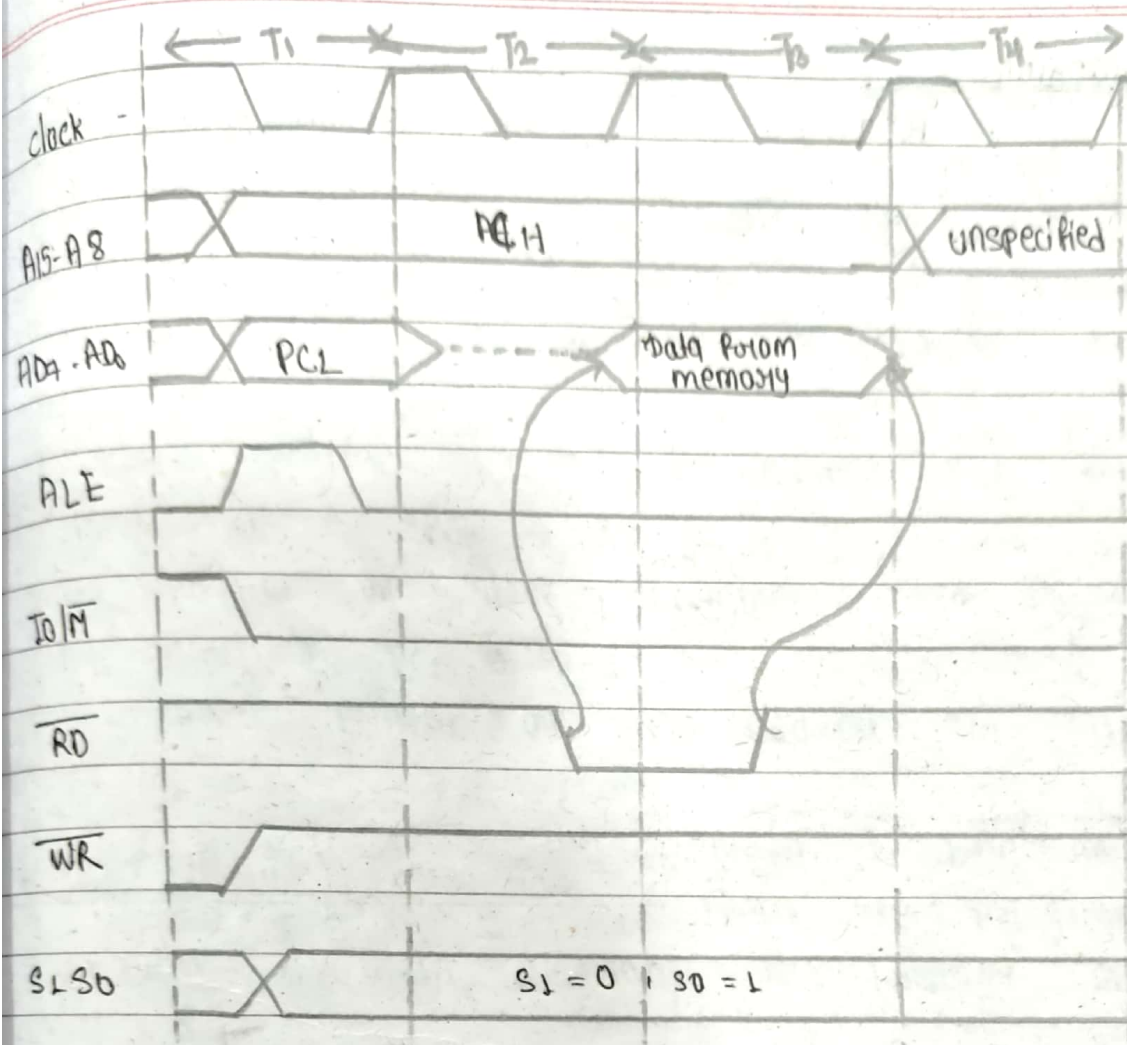 T1 T2 T3 T4
clock
A15-A8 unspecified
AD7-AD0 PCL Data from
memory
ALE
IO/M̅
R̅D̅
W̅R̅
S1S0 S1 = 0, S0 = 1